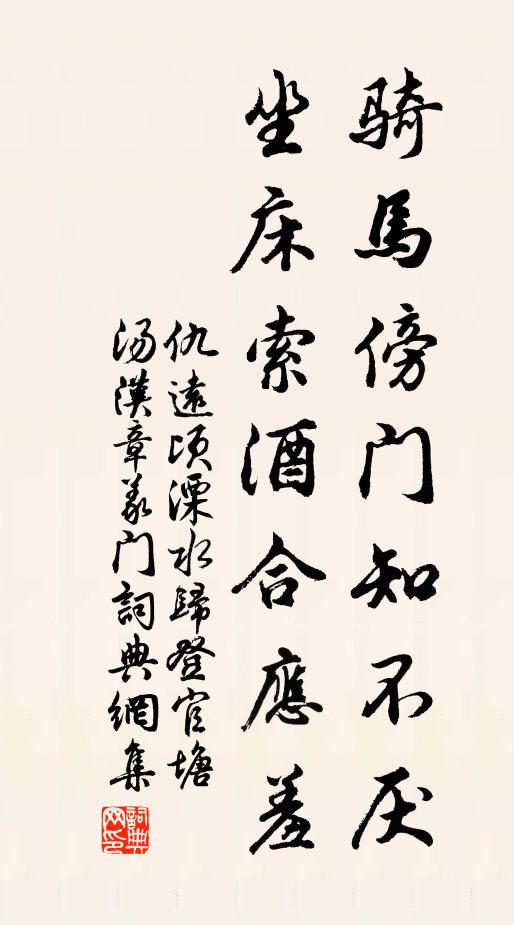 騎馬傍門知不厌
坐床索酒合應羞
仇遠頃溧水歸登官塘
汤漢章義門詞典網集
詞典